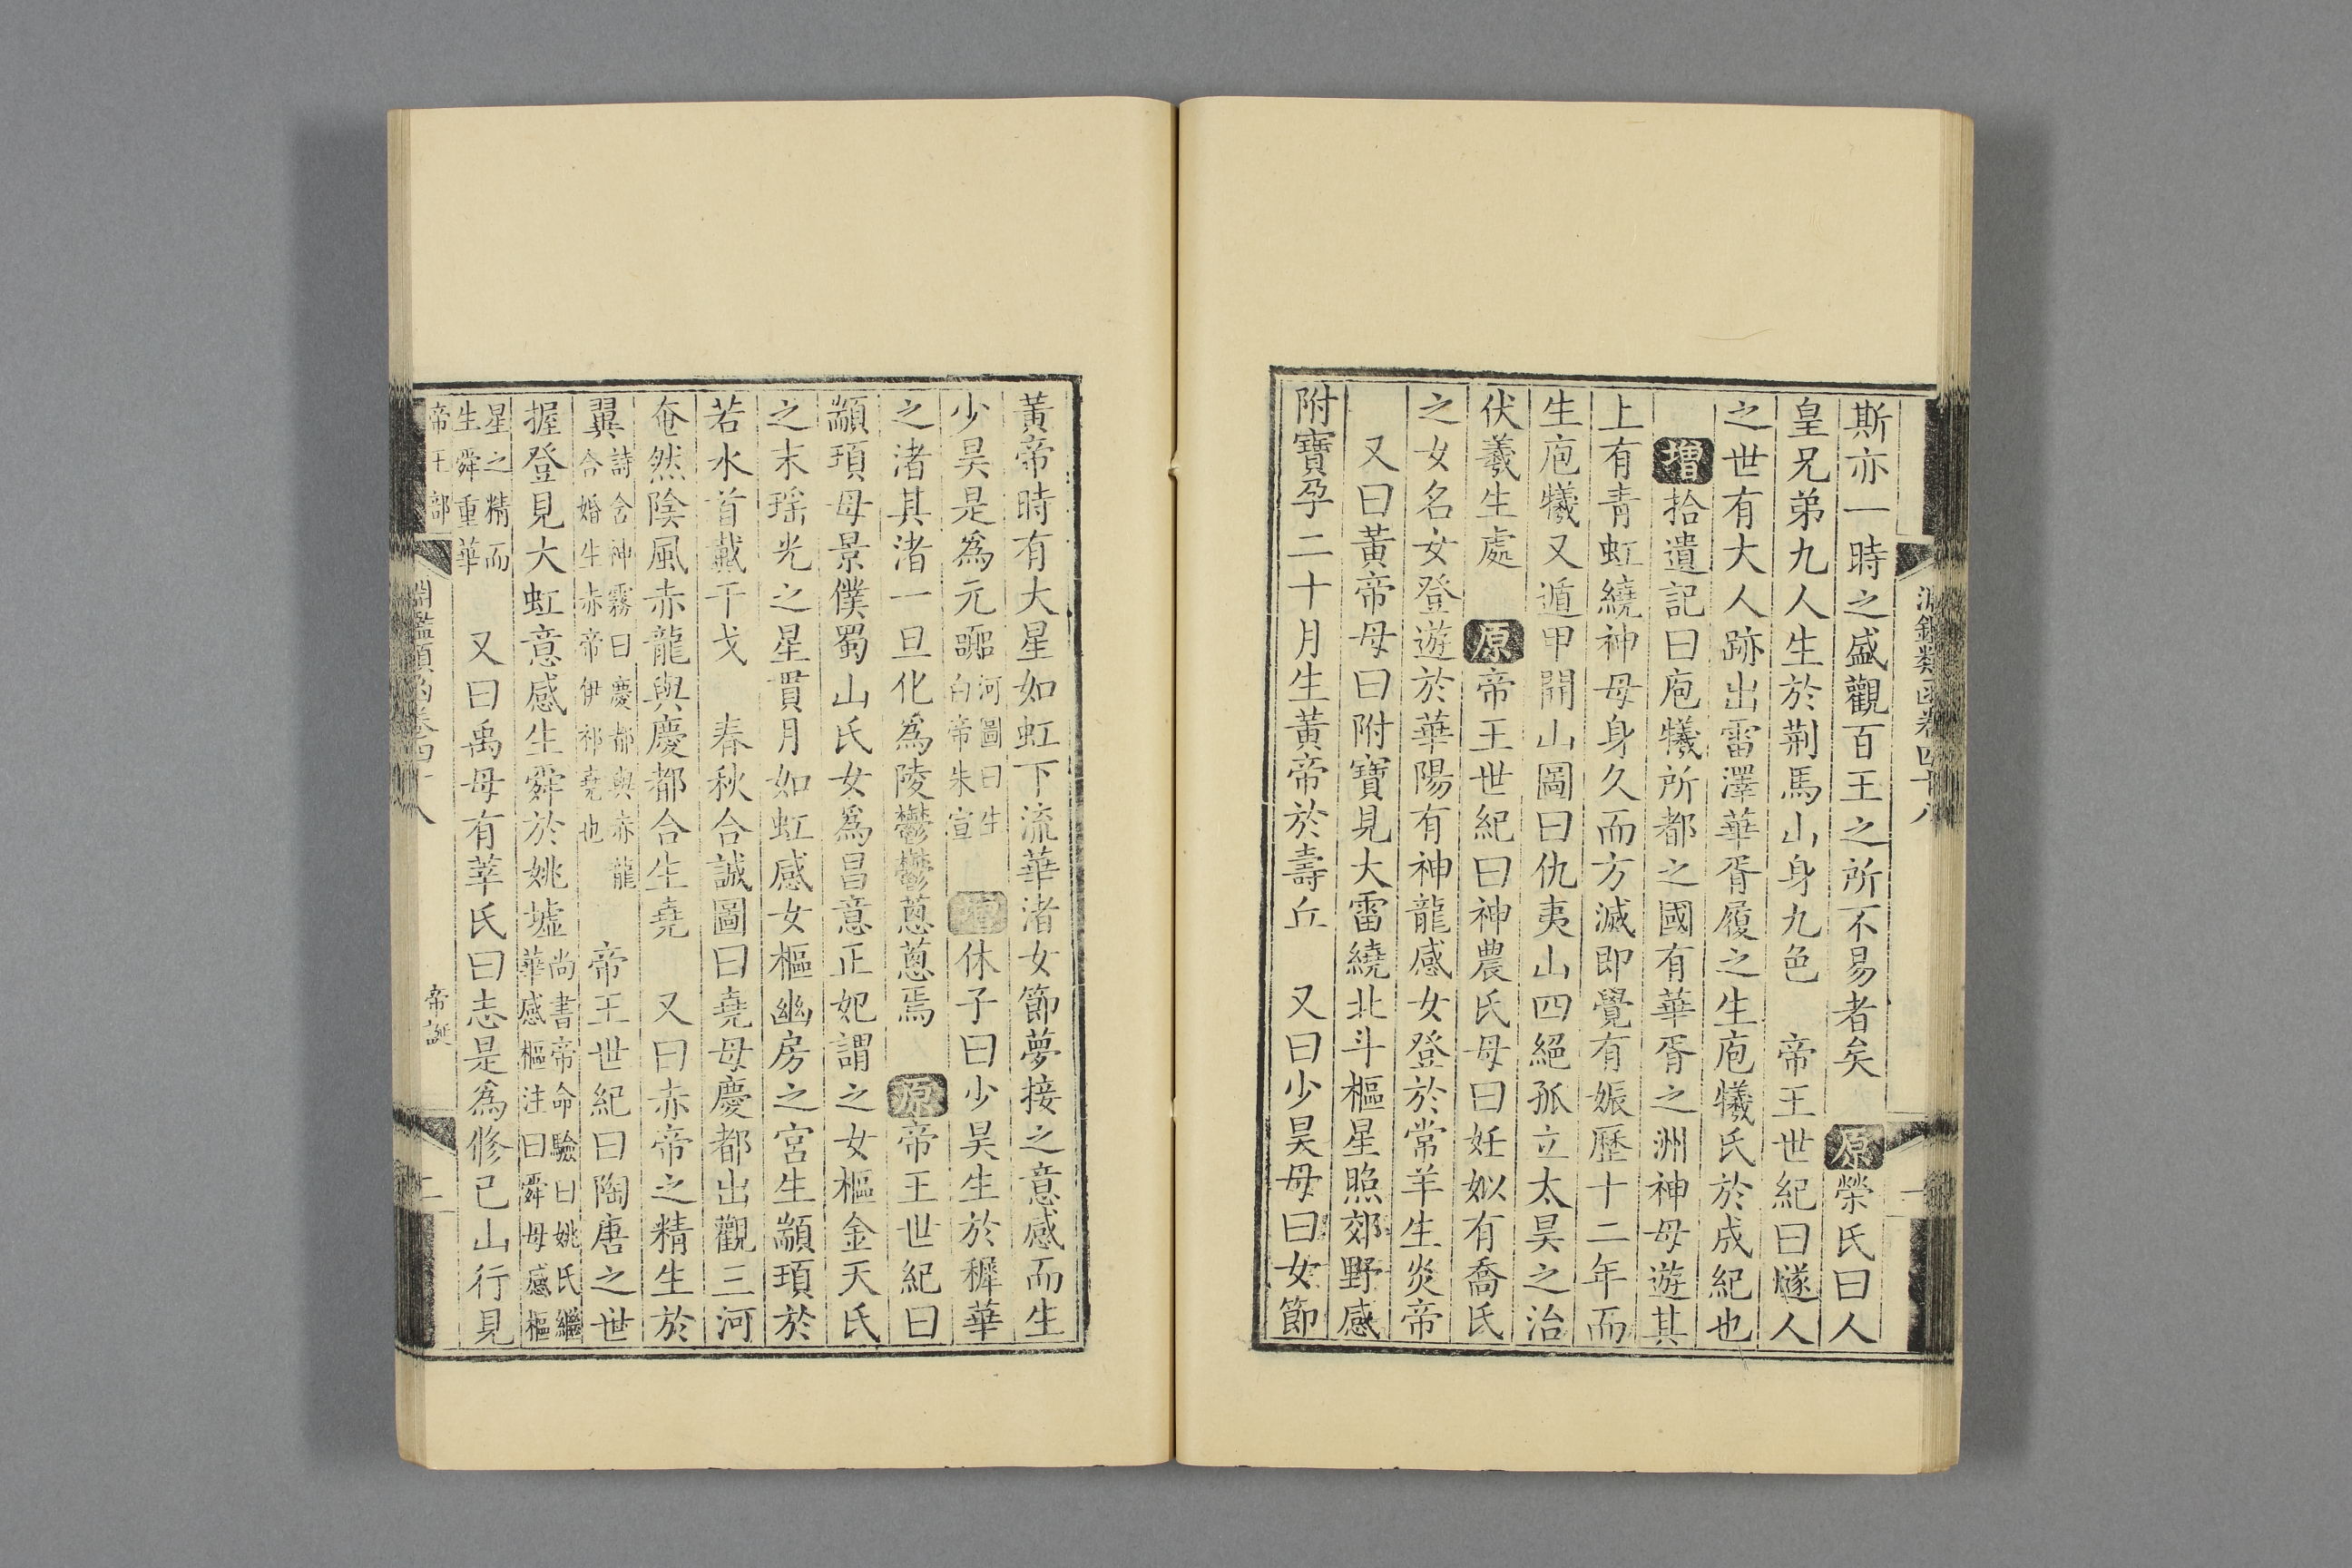 斯亦一時之盛觀百王之所不易者矣 原 榮氏曰人
皇兄弟九人生於荆馬山身九色 帝王世紀曰燧人
之世有大人跡出雷澤華胥履之生庖犧氏於成紀也
增 拾遺記曰庖犧所都之國有華胥之洲神母遊其
上有青虹繞神母身久而方滅即覺有娠歷十二年而
生庖犧又遁甲開山圖曰仇夷山四絕孤立太昊之治
伏羲生處 原 帝王世紀曰神農氏母曰妊姒有喬氏
之女名女登遊於華陽有神龍感女登於常羊生炎帝
又曰黃帝母曰附寶見大雷繞北斗樞星照郊野感
附寶孕二十月生黃帝於壽丘 又曰少昊母曰女節
淵鑑類函卷四十八
一
黃帝時有大星如虹下流華渚女節夢接之意感而生
少昊是爲元囂 河圖曰生
白帝朱宣
增 休子曰少昊生於穉華
之渚其渚一旦化爲陵鬱鬱蔥蔥焉 原 帝王世紀曰
顓頊母景僕蜀山氏女爲昌意正妃謂之女樞金天氏
之末瑤光之星貫月如虹感女樞幽房之宮生顓頊於
若水首戴干戈 春秋合誠圖曰堯母慶都出觀三河
奄然陰風赤龍與慶都合生堯 又曰赤帝之精生於
翼 詩含神霧曰慶都與赤龍
合婚生赤帝伊祁堯也
帝王世紀曰陶唐之世
握登見大虹意感生舜於姚墟 尚書帝命驗曰姚氏縱
華感樞注曰舜母感樞
星之精而
生舜重華
又曰禹母有莘氏曰志是爲修己山行見
帝王部
淵鑑類函卷四十八
帝誕
二